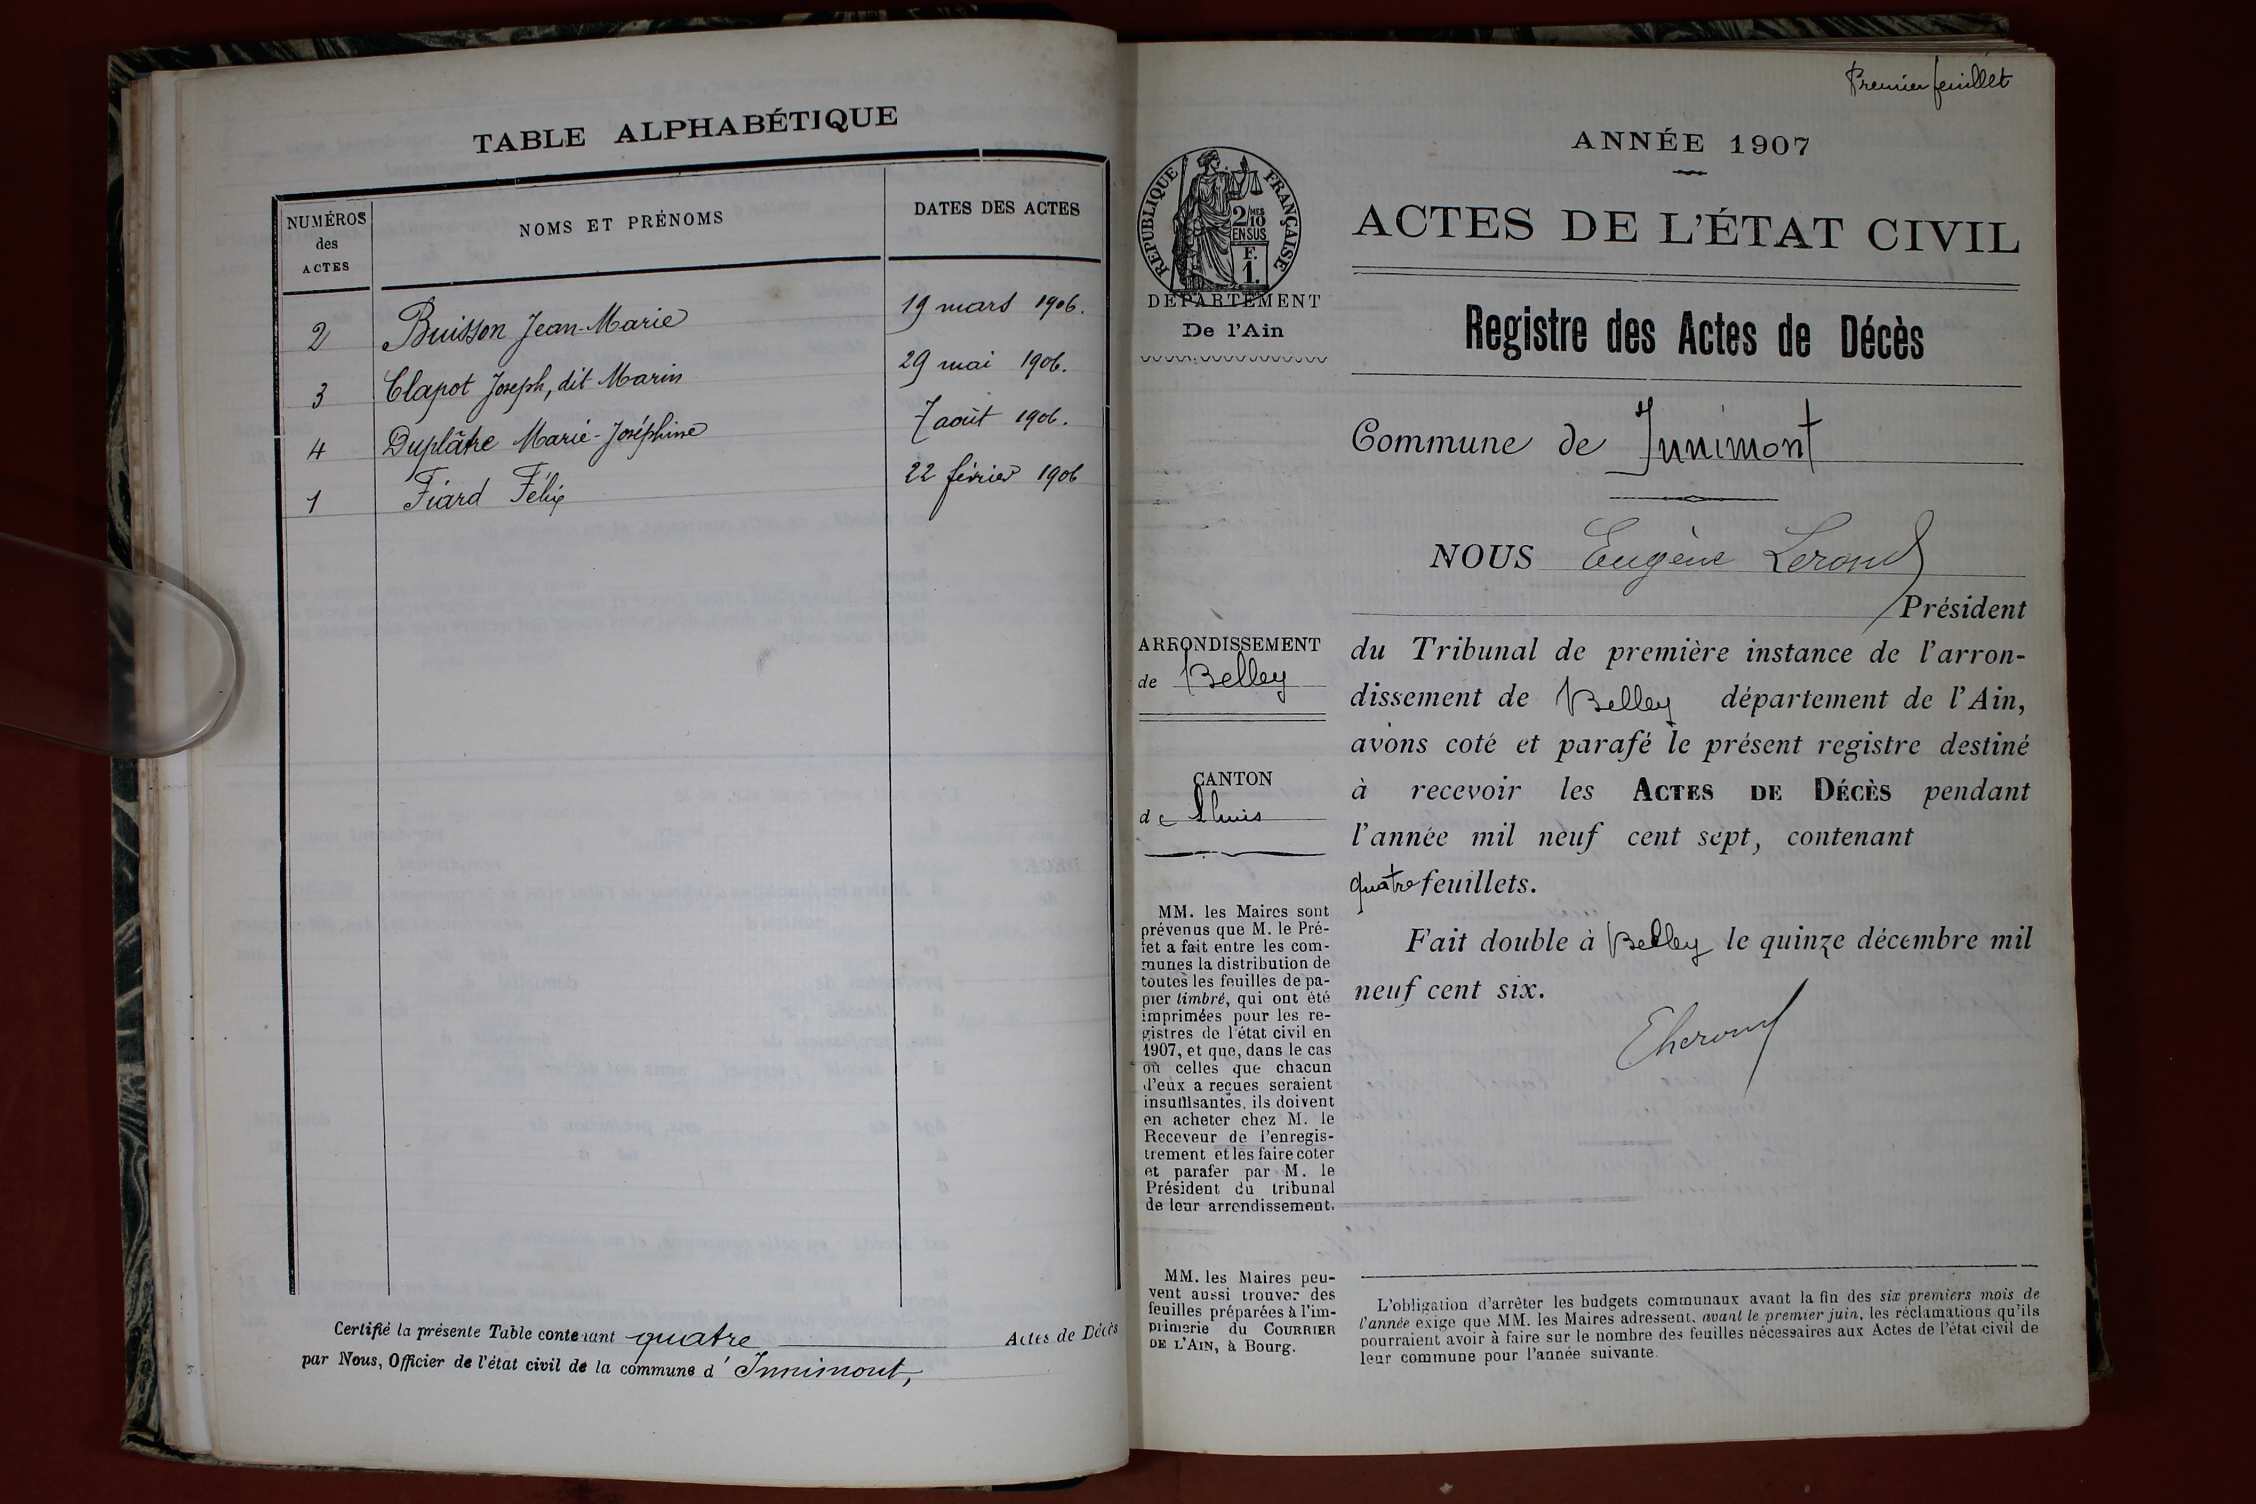 TABLE ALPHABÉTIQUE
NUMÉROS
des
ACTES
NOMS ET PRÉNOMS
DATES DES ACTES
2 Buisson Jean-Marie 19 mars 1906.
3 Clapot Joseph, dit Marin 29 mai 1906.
4 Duplâtre Marie-Joséphine 7 août 1906.
1 Fiard Félix 22 février 1906
Certifié la présente Table contenant quatre Actes de Décès
par Nous, Officier de l'état civil de la commune d' Innimont,
Premier feuillet
ANNÉE 1907
ACTES DE L'ÉTAT CIVIL
RÉPUBLIQUE FRANÇAISE
2/MES
10
EN SUS
F.
1.
DÉPARTEMENT
De l'Ain
Registre des Actes de Décès
Commune de Innimont
NOUS Eugène Lerond
Président
du Tribunal de première instance de l'arron-
dissement de Belley département de l'Ain,
avons coté et parafé le présent registre destiné
à recevoir les ACTES DE DÉCÈS pendant
l'année mil neuf cent sept, contenant
quatre feuillets.
Fait double à Belley le quinze décembre mil
neuf cent six.
ARRONDISSEMENT
de Belley
CANTON
de Lhuis
MM. les Maires sont
prévenus que M. le Pré-
fet a fait entre les com-
munes la distribution de
toutes les feuilles de pa-
pier timbré, qui ont été
imprimées pour les re-
gistres de l'état civil en
1907, et que, dans le cas
où celles que chacun
d'eux a reçues seraient
insuffisantes, ils doivent
en acheter chez M. le
Receveur de l'enregis-
trement et les faire coter
et parafer par M. le
Président du tribunal
de leur arrondissement.
MM. les Maires peu-
vent aussi trouver des
feuilles préparées à l'im-
primerie du COURRIER
DE L'AIN, à Bourg.
L'obligation d'arrêter les budgets communaux avant la fin des six premiers mois de
l'année exige que MM. les Maires adressent, avant le premier juin, les réclamations qu'ils
pourraient avoir à faire sur le nombre des feuilles nécessaires aux Actes de l'état civil de
leur commune pour l'année suivante.